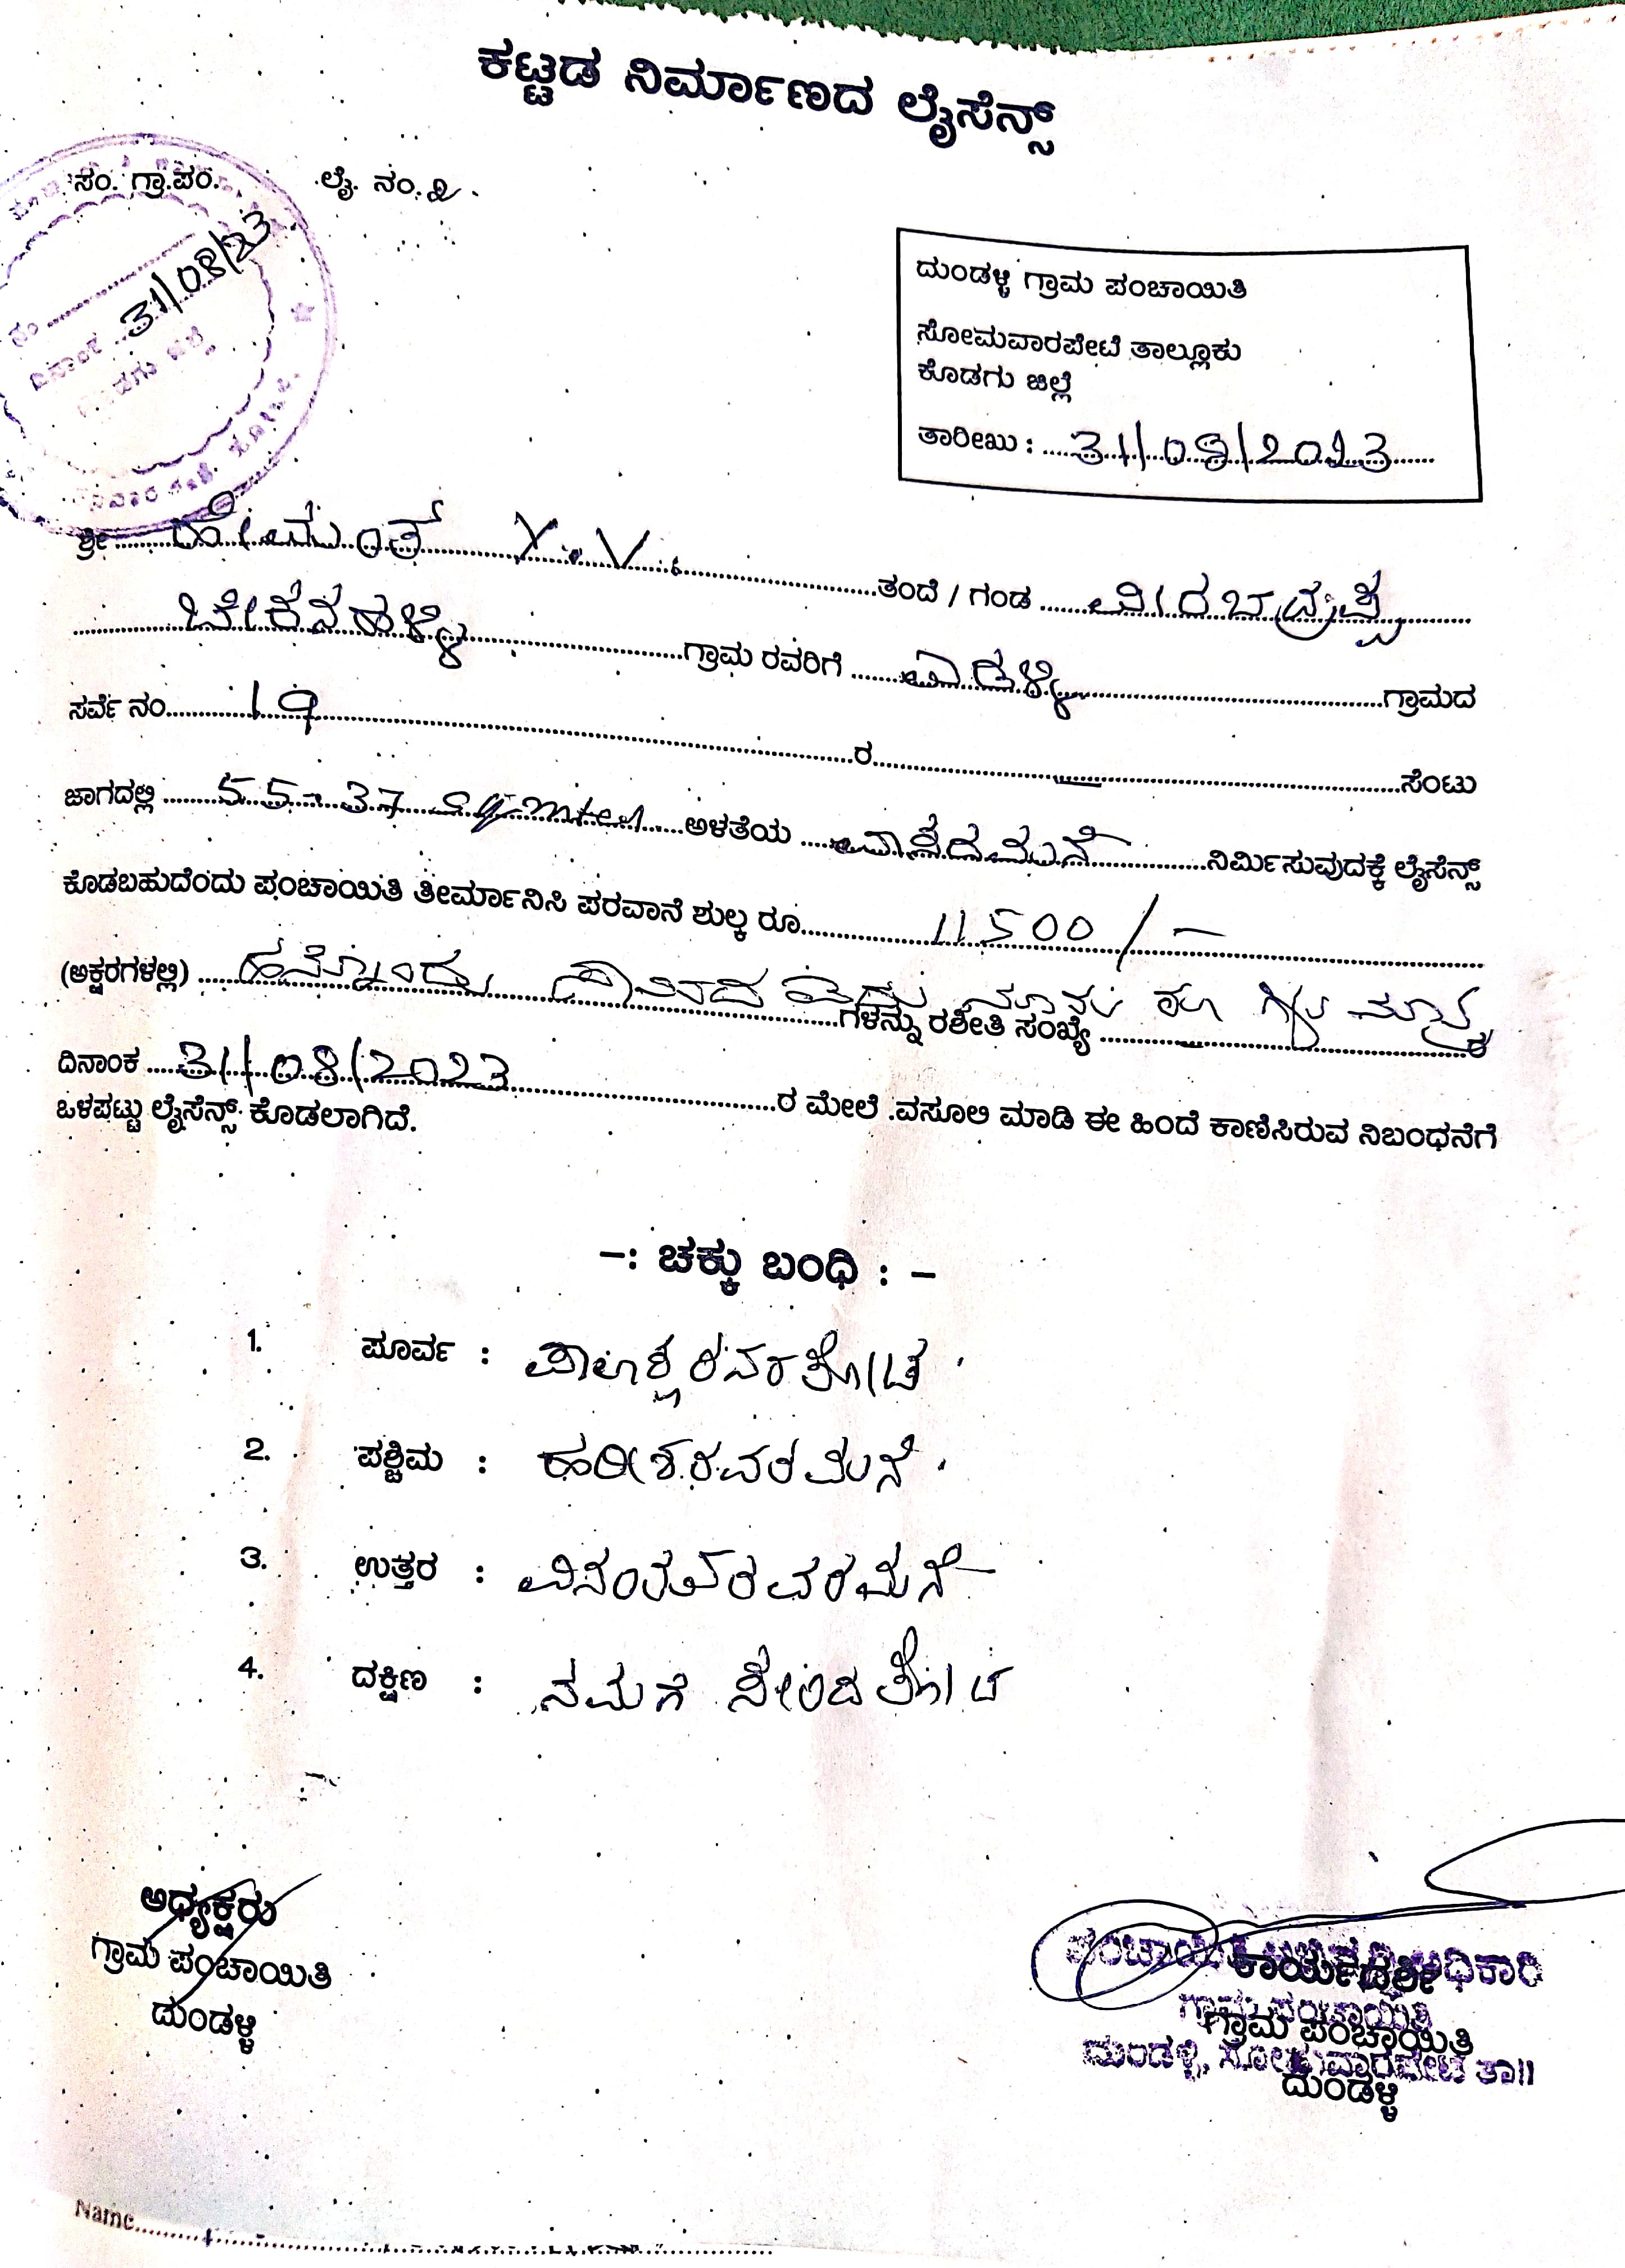 ಕಟ್ಟಡ ನಿರ್ಮಾಣದ ಲೈಸೆನ್ಸ್
ಸಂ. ಗ್ರಾ.ಪಂ. ಲೈ. ನಂ.
31/08/23
ದುಂಡಳ್ಳಿ ಗ್ರಾಮ ಪಂಚಾಯಿತಿ
ಸೋಮವಾರಪೇಟೆ ತಾಲ್ಲೂಕು
ಕೊಡಗು ಜಿಲ್ಲೆ
ತಾರೀಖು : 31/08/2023
ಶ್ರೀ ಹೇಮಂತ್ Y.V. ತಂದೆ / ಗಂಡ ವೀರಭದ್ರಪ್ಪ
ಗ್ರಾಮ ರವರಿಗೆ ಗ್ರಾಮದ
ಸರ್ವೆ ನಂ. 19 ರ ಸೆಂಟು
ಜಾಗದಲ್ಲಿ 55-37 ಅಳತೆಯ ವಾಸದ ಮನೆ ನಿರ್ಮಿಸುವುದಕ್ಕೆ ಲೈಸೆನ್ಸ್
ಕೊಡಬಹುದೆಂದು ಪಂಚಾಯಿತಿ ತೀರ್ಮಾನಿಸಿ ಪರವಾನೆ ಶುಲ್ಕ ರೂ. 11500/-
(ಅಕ್ಷರಗಳಲ್ಲಿ) ಹನ್ನೊಂದು ಸಾವಿರದ ಐದು ನೂರು ರೂ ಗಳು ಮಾತ್ರ
ಗಳನ್ನು ರಶೀತಿ ಸಂಖ್ಯೆ ರ
ದಿನಾಂಕ 31/08/2023 ರ ಮೇಲೆ ವಸೂಲಿ ಮಾಡಿ ಈ ಹಿಂದೆ ಕಾಣಿಸಿರುವ ನಿಬಂಧನೆಗೆ
ಒಳಪಟ್ಟು ಲೈಸೆನ್ಸ್ ಕೊಡಲಾಗಿದೆ.
-: ಚಕ್ಕು ಬಂಧಿ : -
1. ಪೂರ್ವ : ತೋಟ
2. ಪಶ್ಚಿಮ : ಹರೀಶ ರವರ ಮನೆ
3. ಉತ್ತರ : ರವರ ಮನೆ
4. ದಕ್ಷಿಣ : ನಮಗೆ ಸೇರಿದ ತೋಟ
ಅಧ್ಯಕ್ಷರು
ಗ್ರಾಮ ಪಂಚಾಯಿತಿ
ದುಂಡಳ್ಳಿ
ಪಂಚಾಯಿತಿ ಅಭಿವೃದ್ಧಿ ಅಧಿಕಾರಿ
ಕಾರ್ಯದರ್ಶಿ
ಗ್ರಾಮ ಪಂಚಾಯಿತಿ
ಗ್ರಾಮ ಪಂಚಾಯಿತಿ
ದುಂಡಳ್ಳಿ, ಸೋಮವಾರಪೇಟೆ ತಾ||
ದುಂಡಳ್ಳಿ
Name